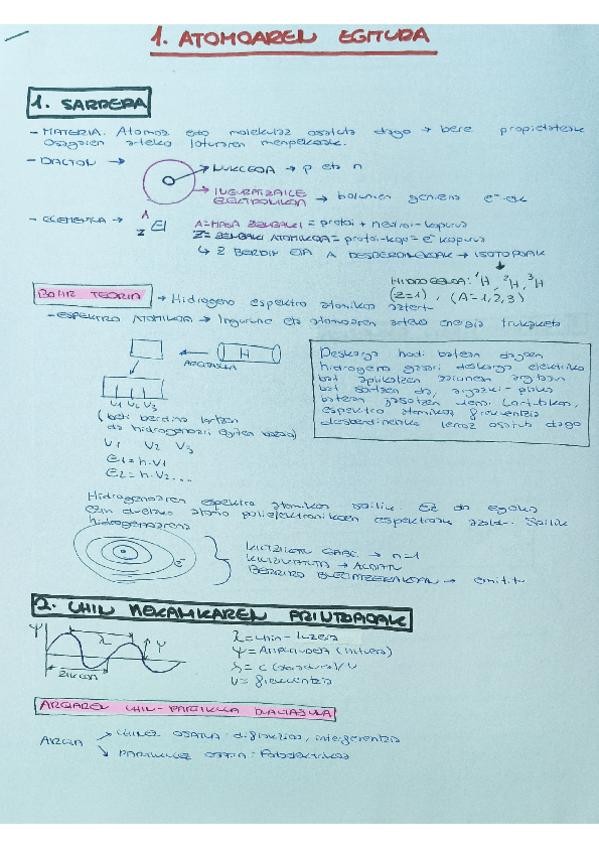 1. ATOMOAREN EGITURA
1. SARRERA
- MATERIA. Atomoz eta molekulaz osatuta dago → bere propietateak
osagaien arteko loturaren menpekoak.
- DALTON →
NUKLEOA → p eta n
INGURATZAILE
ELEKTRONIKOA → bolumen gehiena e⁻-ek
- ELEMENTUA → A Z El
A = MASA ZENBAKI = protoi + neutroi-kopurua
Z = ZENBAKI ATOMIKOA = protoi-kop = e⁻ kopurua
↳ Z BERDIN ETA A DESBERDINEKOAK → ISOTOPOAK
HIDROGENOA: ¹H, ²H, ³H
(Z=1), (A=1,2,3)
BOHR TEORIA → Hidrogeno espektro atomikoa aztert-
- ESPEKTRO ATOMIKOA → Ingurune eta atomoaren arteko energia trukaketa
H
ARGAZKILA
ν1 ν2 ν3
(beti berdina lortzen
da hidrogenoari egiten bazaio)
ν1 ν2 ν3
E1 = h·ν1
E2 = h·ν2...
Deskarga hodi batean dagoen
hidrogeno gasari deskarga elektriko
bat aplikatzen zaionean argitasun
bat sortzen da, argazki-plaka
batean jasotzen dena. Lortutakoa,
espektro atomikoa frekuentzia
desberdineko lerroz osatuta dago
Hidrogenoaren espektro atomikoa soilik. Ez da egokia
ezin duelako atomo polielektronikoen espektroak azaldu. Soilik
hidrogenoarena
e⁻
KITZIKATU GABE → n=1
KITZIKATUTA → ALDATU
BERRIRO BUELTATZERAKOAN → emititu
2. UHIN MEKANIKAREN PRINTZIPIOAK
Ψ
λ
Ψ
Zikloa
λ = uhin-luzera
Ψ = Anplitudea (altuera)
λ = c (abiadura)/ν
ν = frekuentzia
ARGIAREN UHIN-PARTIKULA DUALTASUNA
ARGIA
→ UHINEZ OSATUA: difrakzioa, interferentzia
→ PARTIKULEZ OSATUA: Fotoelektrikoa